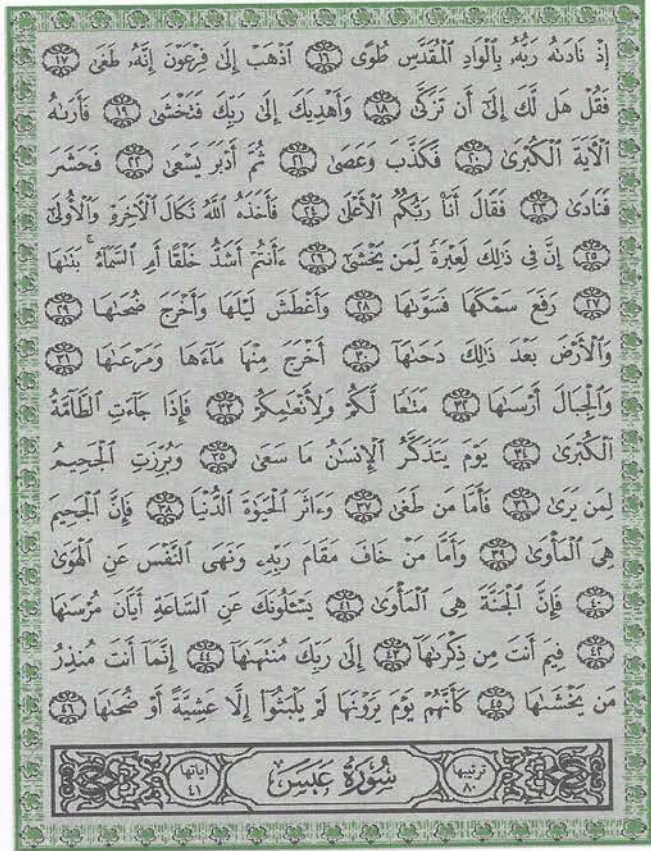 إِذْ نَادَىٰهُ رَبُّهُۥ بِٱلْوَادِ ٱلْمُقَدَّسِ طُوًى ١٦ ٱذْهَبْ إِلَىٰ فِرْعَوْنَ إِنَّهُۥ طَغَىٰ ١٧
فَقُلْ هَل لَّكَ إِلَىٰٓ أَن تَزَكَّىٰ ١٨ وَأَهْدِيَكَ إِلَىٰ رَبِّكَ فَتَخْشَىٰ ١٩ فَأَرَىٰهُ
ٱلْآيَةَ ٱلْكُبْرَىٰ ٢٠ فَكَذَّبَ وَعَصَىٰ ٢١ ثُمَّ أَدْبَرَ يَسْعَىٰ ٢٢ فَحَشَرَ
فَنَادَىٰ ٢٣ فَقَالَ أَنَا۠ رَبُّكُمُ ٱلْأَعْلَىٰ ٢٤ فَأَخَذَهُ ٱللَّهُ نَكَالَ ٱلْآخِرَةِ وَٱلْأُولَىٰٓ
٢٥ إِنَّ فِى ذَٰلِكَ لَعِبْرَةً لِّمَن يَخْشَىٰٓ ٢٦ ءَأَنتُمْ أَشَدُّ خَلْقًا أَمِ ٱلسَّمَآءُ ۚ بَنَىٰهَا
٢٧ رَفَعَ سَمْكَهَا فَسَوَّىٰهَا ٢٨ وَأَغْطَشَ لَيْلَهَا وَأَخْرَجَ ضُحَىٰهَا ٢٩
وَٱلْأَرْضَ بَعْدَ ذَٰلِكَ دَحَىٰهَآ ٣٠ أَخْرَجَ مِنْهَا مَآءَهَا وَمَرْعَىٰهَا ٣١
وَٱلْجِبَالَ أَرْسَىٰهَا ٣٢ مَتَٰعًا لَّكُمْ وَلِأَنْعَٰمِكُمْ ٣٣ فَإِذَا جَآءَتِ ٱلطَّآمَّةُ
ٱلْكُبْرَىٰ ٣٤ يَوْمَ يَتَذَكَّرُ ٱلْإِنسَٰنُ مَا سَعَىٰ ٣٥ وَبُرِّزَتِ ٱلْجَحِيمُ
لِمَن يَرَىٰ ٣٦ فَأَمَّا مَن طَغَىٰ ٣٧ وَءَاثَرَ ٱلْحَيَوٰةَ ٱلدُّنْيَا ٣٨ فَإِنَّ ٱلْجَحِيمَ
هِىَ ٱلْمَأْوَىٰ ٣٩ وَأَمَّا مَنْ خَافَ مَقَامَ رَبِّهِۦ وَنَهَى ٱلنَّفْسَ عَنِ ٱلْهَوَىٰ
٤٠ فَإِنَّ ٱلْجَنَّةَ هِىَ ٱلْمَأْوَىٰ ٤١ يَسْـَٔلُونَكَ عَنِ ٱلسَّاعَةِ أَيَّانَ مُرْسَىٰهَا
٤٢ فِيمَ أَنتَ مِن ذِكْرَىٰهَآ ٤٣ إِلَىٰ رَبِّكَ مُنتَهَىٰهَآ ٤٤ إِنَّمَآ أَنتَ مُنذِرُ
مَن يَخْشَىٰهَا ٤٥ كَأَنَّهُمْ يَوْمَ يَرَوْنَهَا لَمْ يَلْبَثُوٓا۟ إِلَّا عَشِيَّةً أَوْ ضُحَىٰهَا ٤٦
ترتيبها ٨٠ سُورَةُ عَبَسَ آياتها ٤١